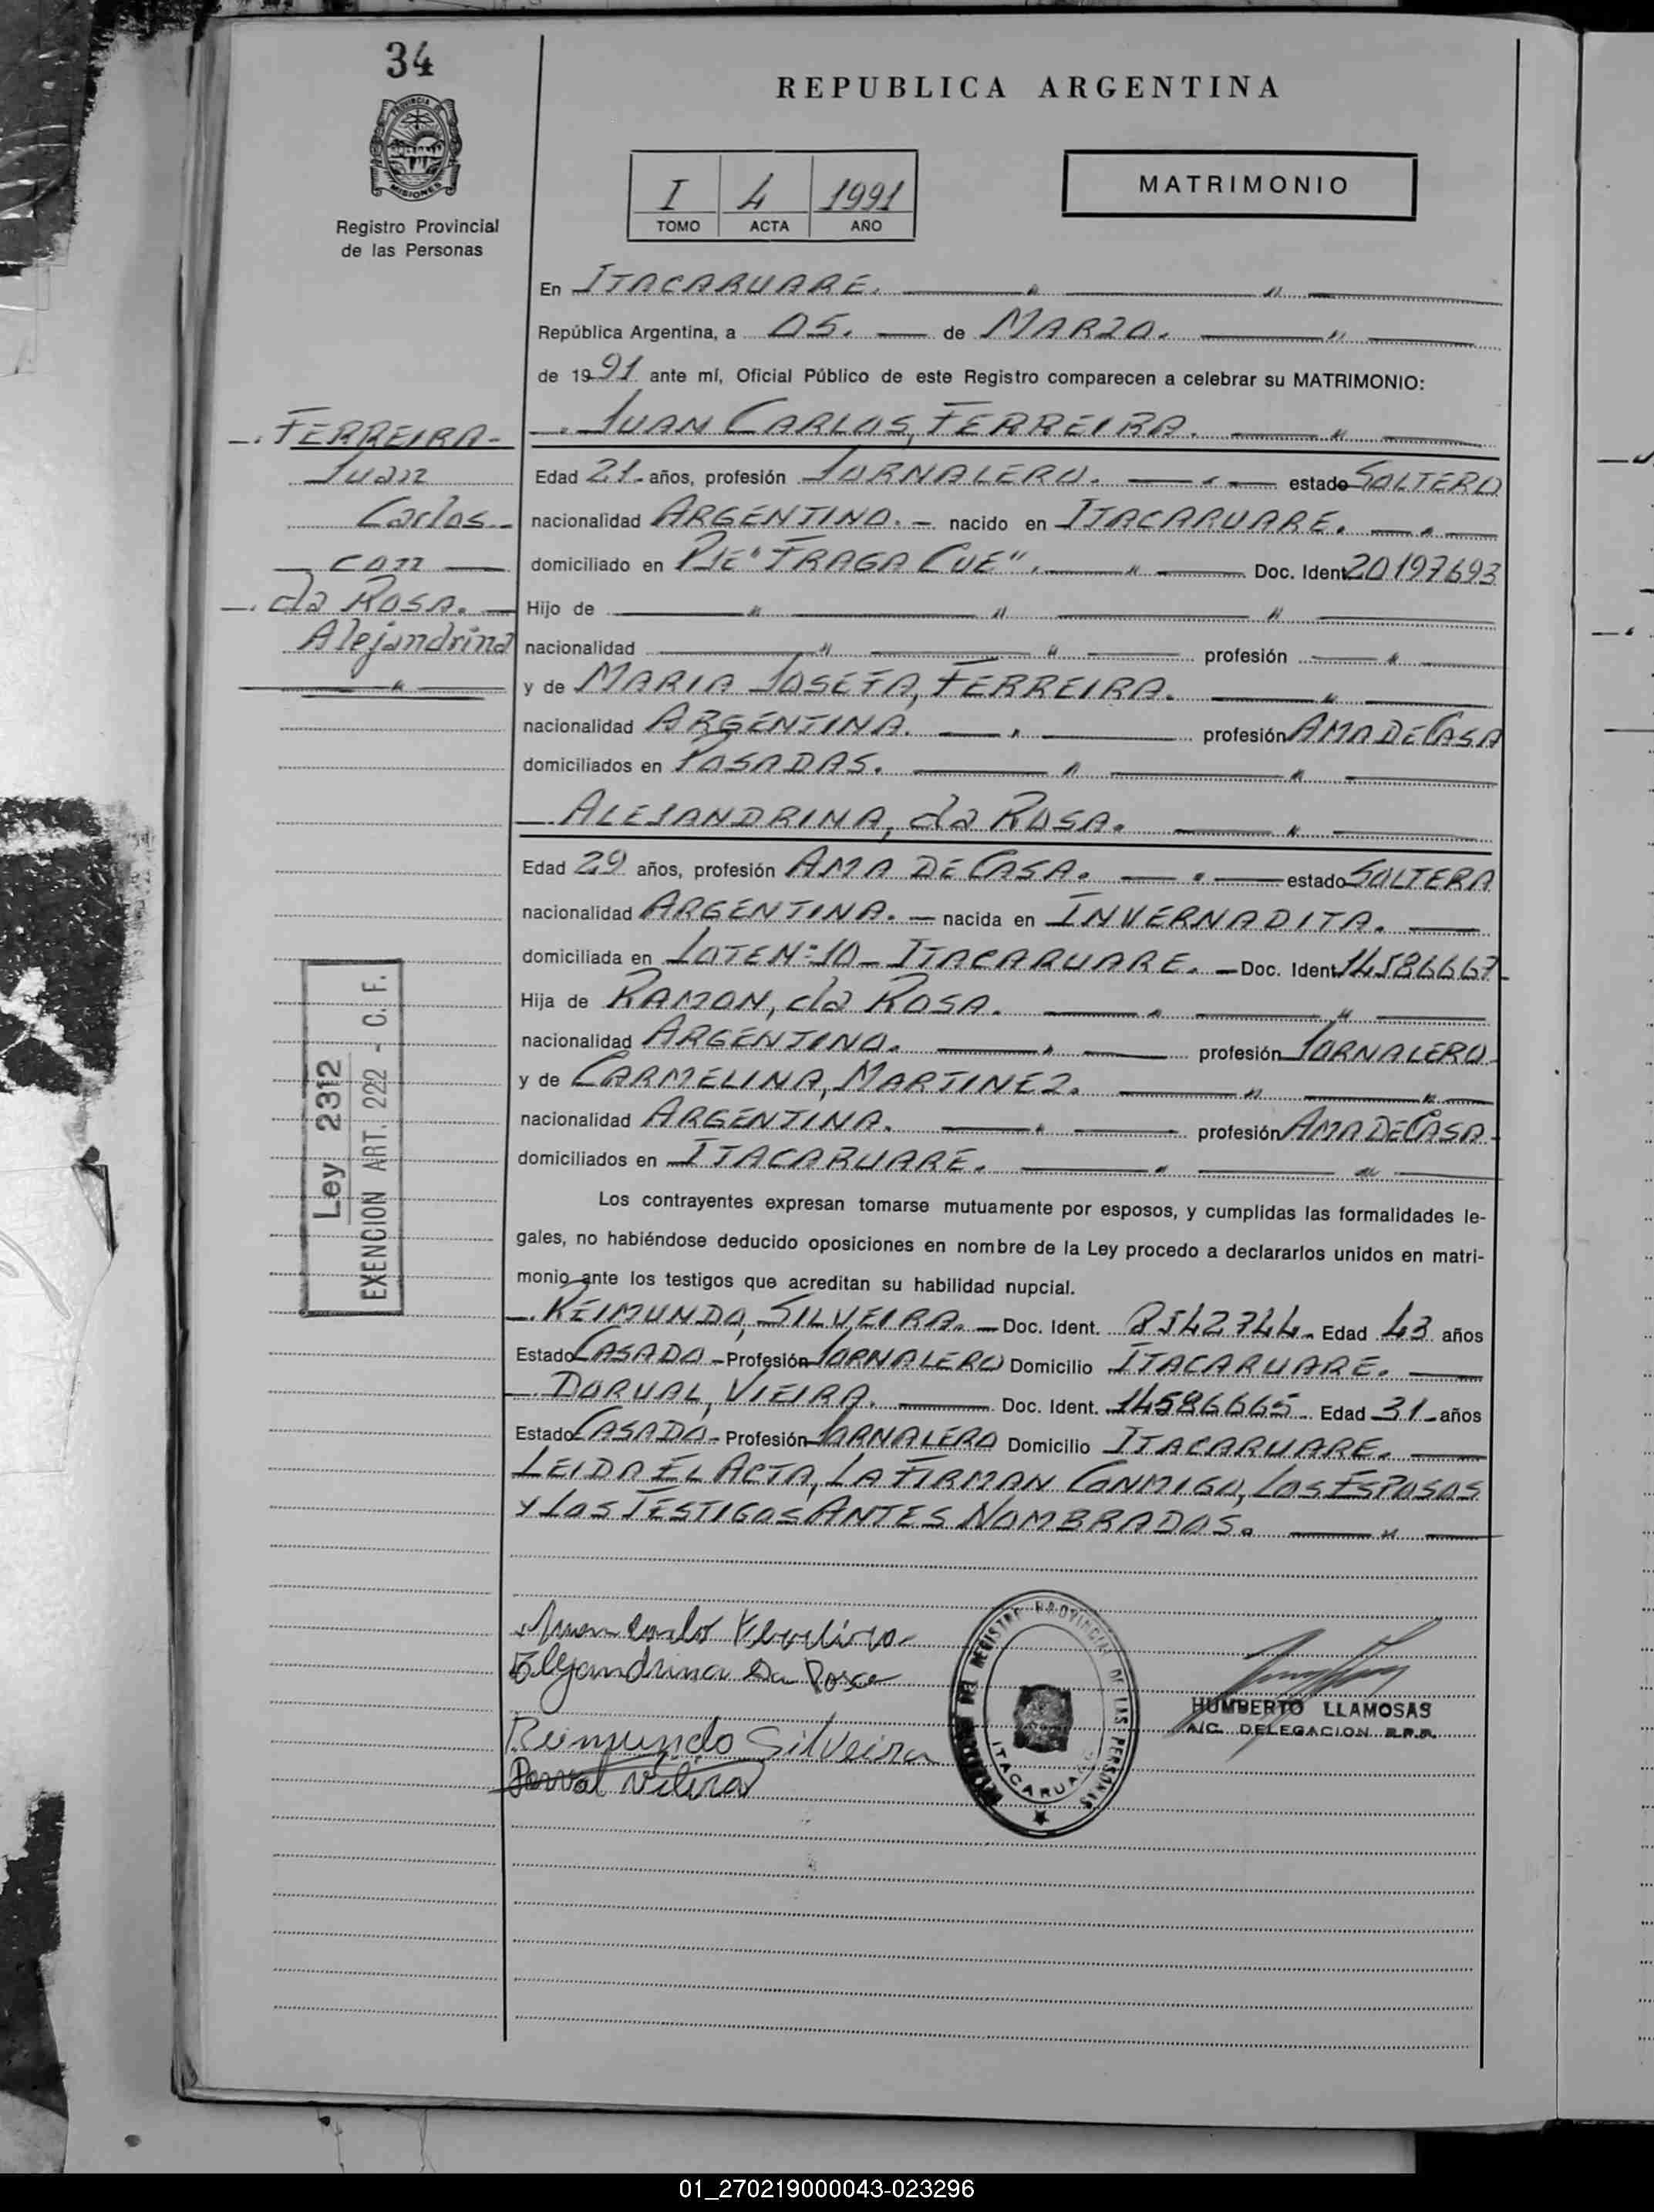 34
PROVINCIA DE
MISIONES
Registro Provincial
de las Personas
REPUBLICA ARGENTINA
I 4 1991
TOMO ACTA AÑO
MATRIMONIO
En ITACARUARE.
República Argentina, a 05. de MARZO.
de 1991 ante mí, Oficial Público de este Registro comparecen a celebrar su MATRIMONIO:
JUAN CARLOS, FERREIRA.
Edad 21 años, profesión JORNALERO. estado SOLTERO
nacionalidad ARGENTINO. nacido en ITACARUARE.
domiciliado en PJE "FRAGA CUE". Doc. Ident 20197693
Hijo de
nacionalidad profesión
y de MARIA JOSEFA, FERREIRA.
nacionalidad ARGENTINA. profesión AMA DE CASA
domiciliados en POSADAS.
ALEJANDRINA, da ROSA.
Edad 29 años, profesión AMA DE CASA. estado SOLTERA
nacionalidad ARGENTINA. nacida en INVERNADITA.
domiciliada en LOTE Nº 10 - ITACARUARE. Doc. Ident 14586667
Hija de RAMON, da ROSA.
nacionalidad ARGENTINO. profesión JORNALERO
y de CARMELINA, MARTINEZ.
nacionalidad ARGENTINA. profesión AMA DE CASA
domiciliados en ITACARUARE.
Los contrayentes expresan tomarse mutuamente por esposos, y cumplidas las formalidades le-
gales, no habiéndose deducido oposiciones en nombre de la Ley procedo a declararlos unidos en matri-
monio ante los testigos que acreditan su habilidad nupcial.
REIMUNDO, SILVEIRA. Doc. Ident. 8542744 Edad 43 años
Estado CASADO Profesión JORNALERO Domicilio ITACARUARE.
DORVAL, VIEIRA. Doc. Ident. 14586665 Edad 31 años
Estado CASADO Profesión JORNALERO Domicilio ITACARUARE.
LEIDA EL ACTA, LA FIRMAN CONMIGO, LOS ESPOSOS
Y LOS TESTIGOS ANTES NOMBRADOS.
FERREIRA
Juan
Carlos
con
da ROSA.
Alejandrina
Ley 2312
EXENCION ART. 222 - C. F.
Juan Carlo Ferreira
Elejandrina Da Rosa
Reimundo Silveira
Dorval Vieira
REGISTRO PROVINCIAL DE LAS PERSONAS
ITACARUARE
HUMBERTO LLAMOSAS
A/C. DELEGACION R.P.P.
01_270219000043-023296